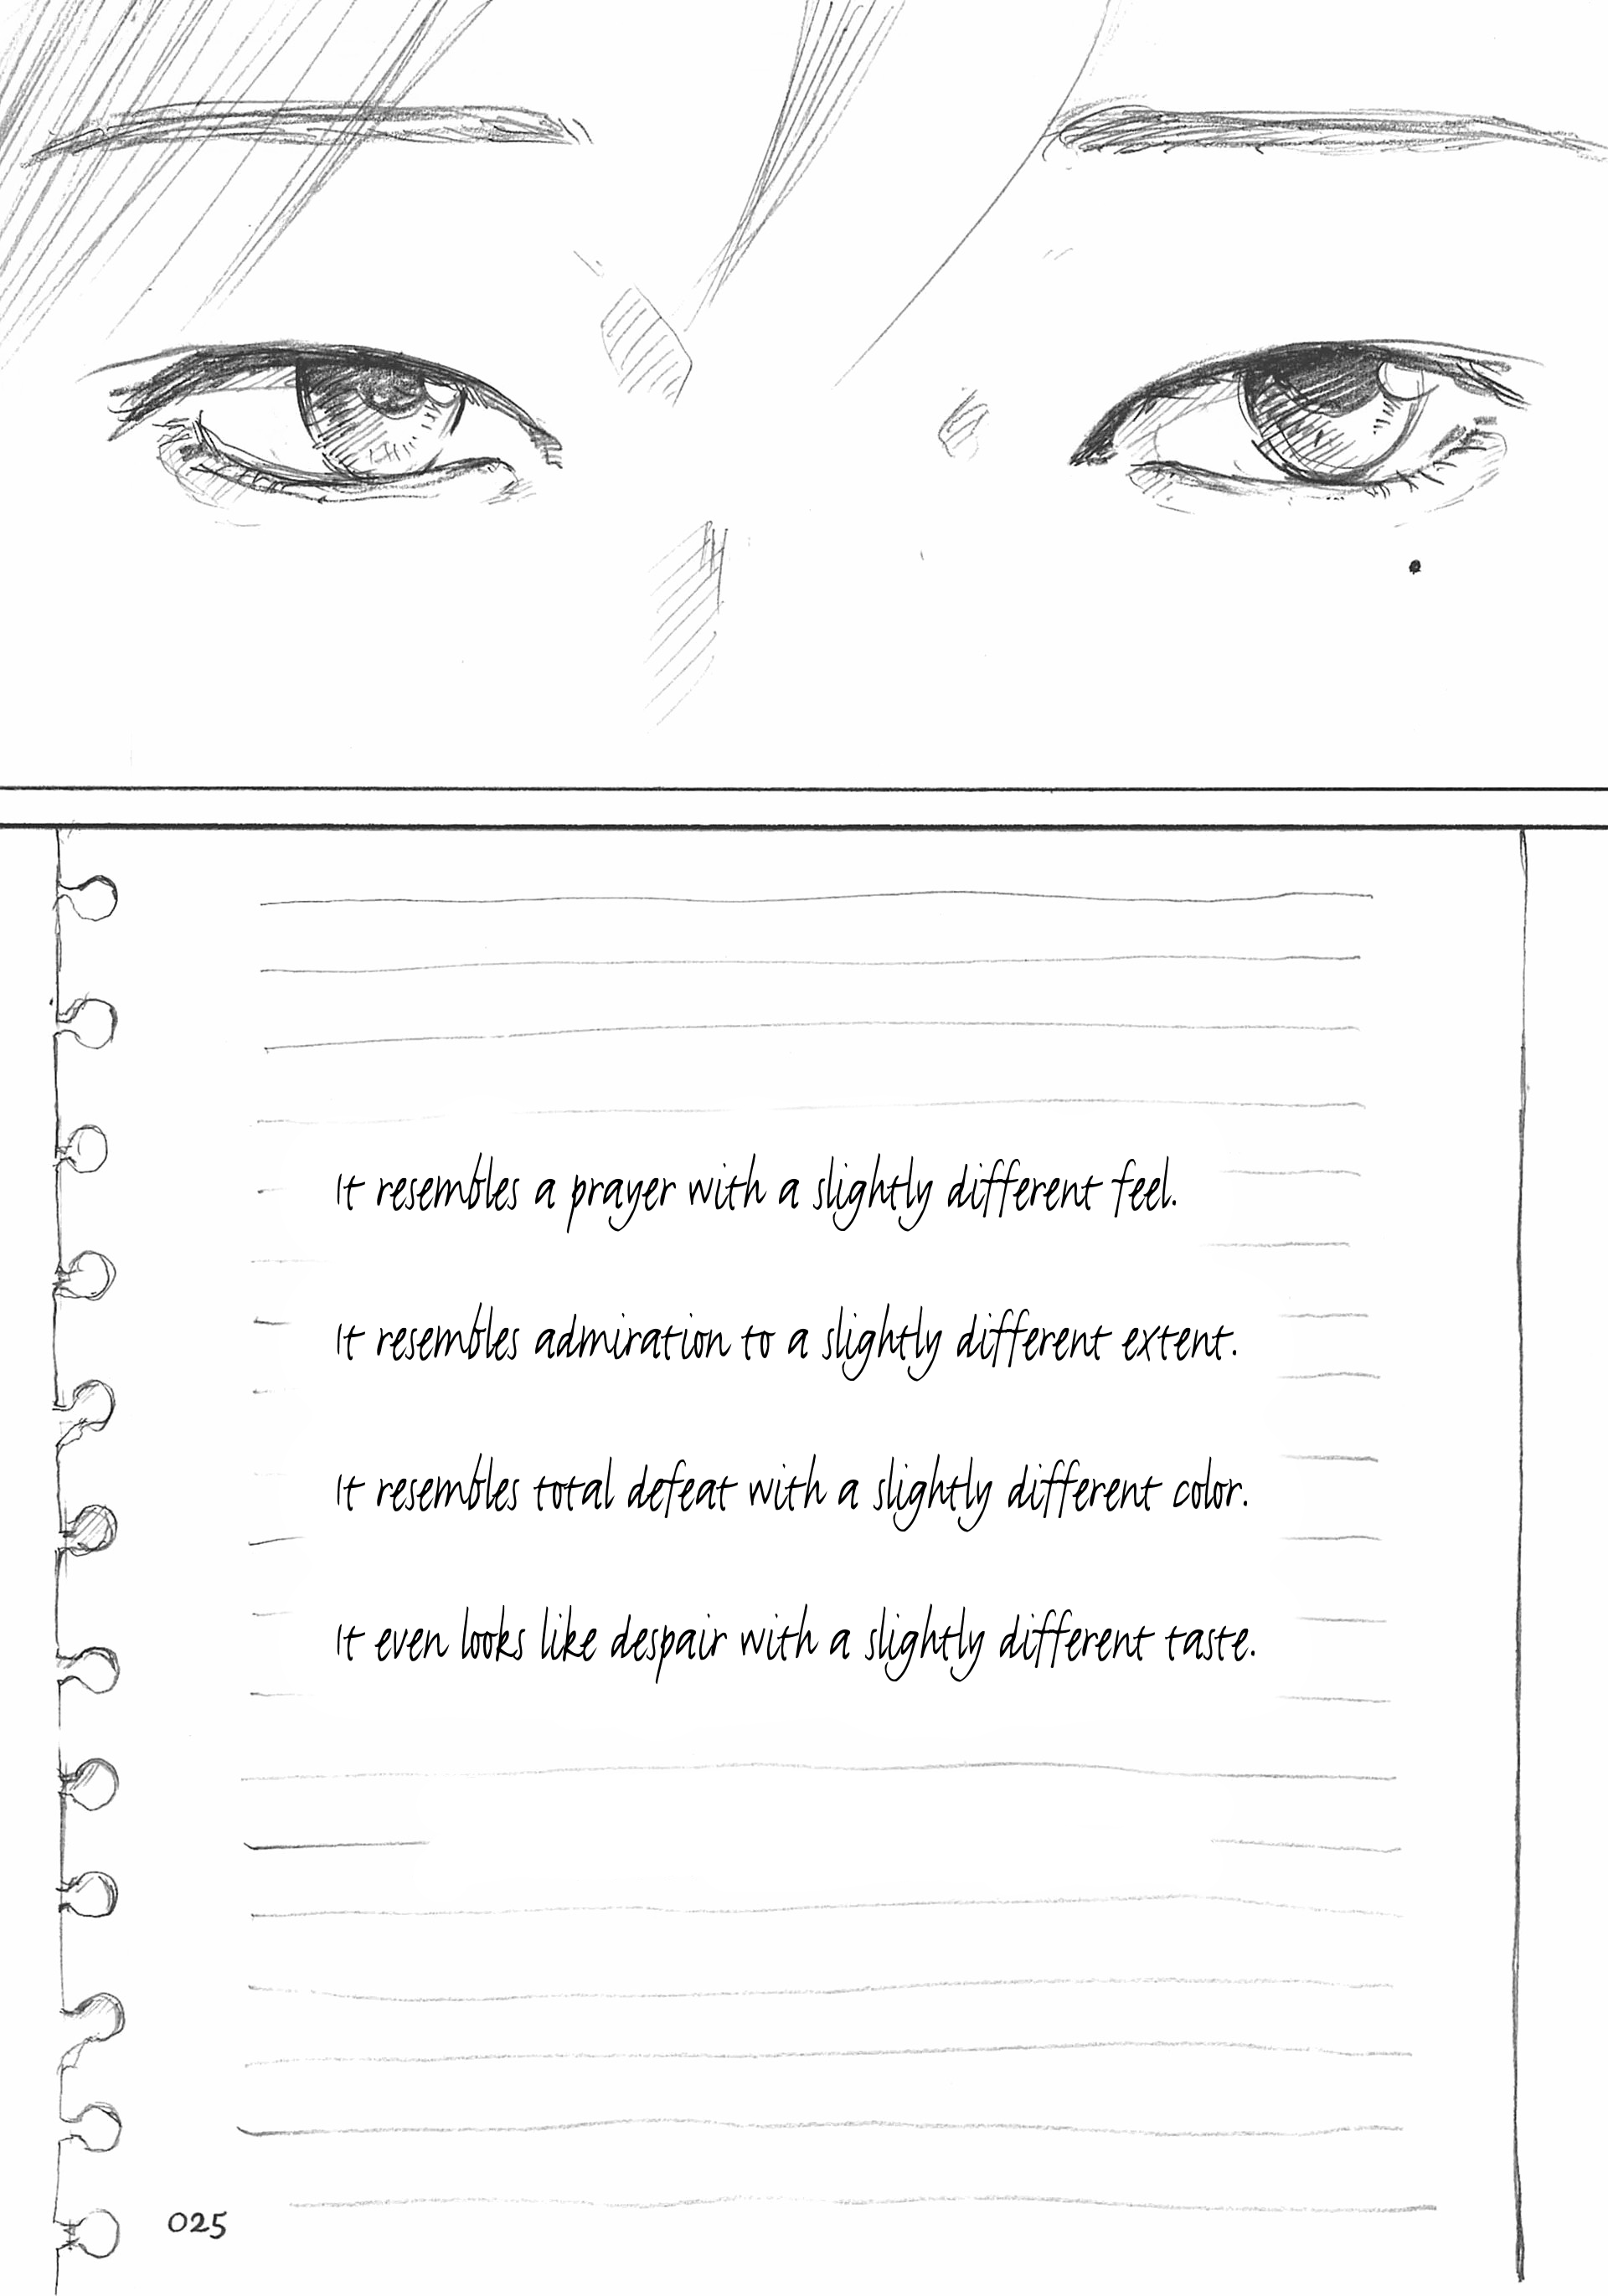 It resembles a prayer with a slightly different feel.
It resembles admiration to a slightly different extent.
It resembles total defeat with a slightly different color.
It even looks like despair with a slightly different taste.
025